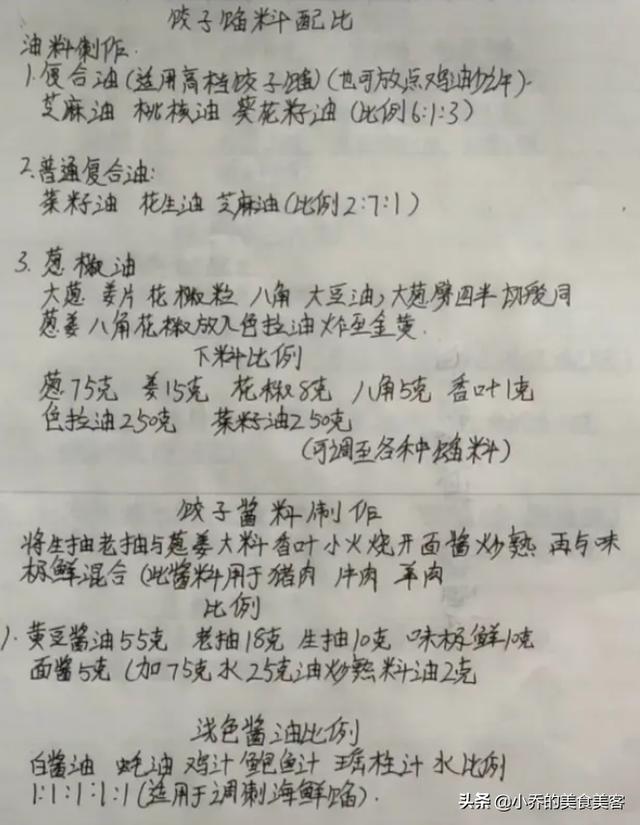 饺子馅料配比
油料制作.
1.复合油(适用高档饺子馅)(也可放点鸡油少许).
芝麻油 桃核油 葵花籽油(比例6:1:3)
2.普通复合油:
菜籽油 花生油 芝麻油(比例2:7:1)
3.葱椒油
大葱 姜片 花椒粒 八角 大豆油,大葱劈四半切段同
葱姜八角花椒放入色拉油炸至金黄.
下料比例
葱75克 姜15克 花椒8克 八角5克 香叶1克
色拉油250克 菜籽油250克
(可调至各种馅料)
饺子酱料制作
将生抽老抽与葱姜大料香叶小火烧开面酱炒熟 再与味
极鲜混合(此酱料用于猪肉 牛肉 羊肉
比例
1.黄豆酱油55克 老抽18克 生抽10克 味极鲜10克
面酱5克(加75克水25克油炒熟料油2克
浅色酱油比例
白酱油 蚝油 鸡汁 鲍鱼汁 瑶柱汁 水比例
1:1:1:1:1(适用于调制海鲜馅).
头条 @小乔的美食美客